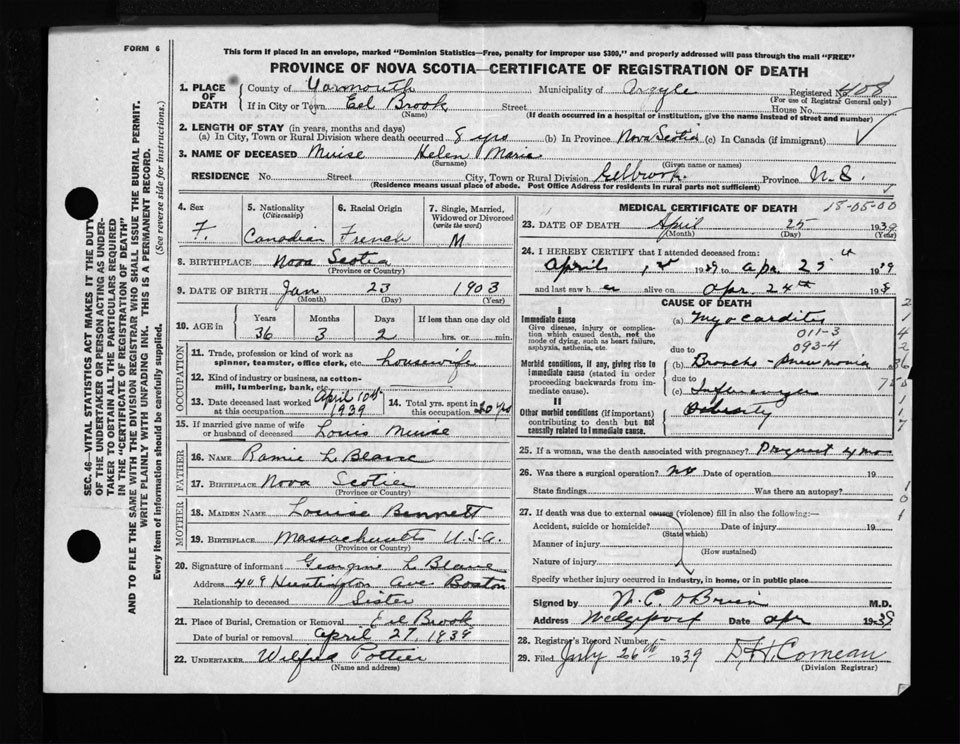 FORM 6
This form if placed in an envelope, marked "Dominion Statistics—Free, penalty for improper use $300," and properly addressed will pass through the mail "FREE"
PROVINCE OF NOVA SCOTIA—CERTIFICATE OF REGISTRATION OF DEATH
1. PLACE OF DEATH County of Yarmouth Municipality of Argyle Registered No. 408
(For use of Registrar General only)
If in City or Town Eel Brook Street House No.
(Name) (If death occurred in a hospital or institution, give the name instead of street and number)
2. LENGTH OF STAY (in years, months and days)
(a) In City, Town or Rural Division where death occurred 8 yrs (b) In Province Nova Scotia (c) In Canada (if immigrant)
3. NAME OF DECEASED Muise Helen Maria
(Surname) (Given name or names)
RESIDENCE No. Street City, Town or Rural Division Eelbrook Province N.S.
(Residence means usual place of abode. Post Office Address for residents in rural parts not sufficient)
4. Sex 5. Nationality (Citizenship) 6. Racial Origin 7. Single, Married, Widowed or Divorced (write the word)
F. Canadian French M
8. BIRTHPLACE Nova Scotia
(Province or Country)
9. DATE OF BIRTH Jan 23 1903
(Month) (Day) (Year)
10. AGE in Years Months Days If less than one day old
36 3 2 hrs. or min.
OCCUPATION
11. Trade, profession or kind of work as spinner, teamster, office clerk, etc. housewife
12. Kind of industry or business, as cotton-mill, lumbering, bank, etc.
13. Date deceased last worked at this occupation April 10th 1939 14. Total yrs. spent in this occupation 20 yrs
15. If married give name of wife or husband of deceased Louis Muise
FATHER
16. NAME Ramie LeBlanc
17. BIRTHPLACE Nova Scotia
(Province or Country)
MOTHER
18. MAIDEN NAME Louise Bennett
19. BIRTHPLACE Massachusetts U.S.A.
(Province or Country)
20. Signature of informant Georgine LeBlanc
Address 409 Huntington Ave Boston
Relationship to deceased Sister
21. Place of Burial, Cremation or Removal Eel Brook
Date of burial or removal April 27 1939
22. UNDERTAKER Wilfred Pottier
(Name and address)
MEDICAL CERTIFICATE OF DEATH 18-05-00
23. DATE OF DEATH April 25 1939
(Month) (Day) (Year)
24. I HEREBY CERTIFY that I attended deceased from:
April 1st 1939 to Apr 25th 1939
and last saw her alive on Apr. 24th 1939
CAUSE OF DEATH
I
Immediate cause (a) Myocarditis
Give disease, injury or complication which caused death, not the mode of dying, such as heart failure, asphyxia, asthenia, etc.
011-3
093-4
due to
Morbid conditions, if any, giving rise to immediate cause (stated in order proceeding backwards from immediate cause). (b) Broncho-Pneumonia
due to
(c) Influenza
II
Other morbid conditions (if important) contributing to death but not causally related to immediate cause. Obesity
25. If a woman, was the death associated with pregnancy? Pregnant 4 mo
26. Was there a surgical operation? no Date of operation 19
State findings Was there an autopsy?
27. If death was due to external causes (violence) fill in also the following:—
Accident, suicide or homicide? Date of injury 19
(State which)
Manner of injury
(How sustained)
Nature of injury
Specify whether injury occurred in industry, in home, or in public place
Signed by N. C. O'Brien M.D.
Address Wedgeport Date Apr 1939
28. Registrar's Record Number
29. Filed July 26th 1939 D. H. Comeau
(Division Registrar)
SEC. 46—VITAL STATISTICS ACT MAKES IT THE DUTY
OF THE UNDERTAKER OR PERSON ACTING AS UNDER-
TAKER TO OBTAIN ALL THE PARTICULARS REQUIRED
IN THE "CERTIFICATE OF REGISTRATION OF DEATH"
AND TO FILE THE SAME WITH THE DIVISION REGISTRAR WHO SHALL ISSUE THE BURIAL PERMIT.
WRITE PLAINLY WITH UNFADING INK. THIS IS A PERMANENT RECORD.
Every item of information should be carefully supplied. (See reverse side for instructions.)